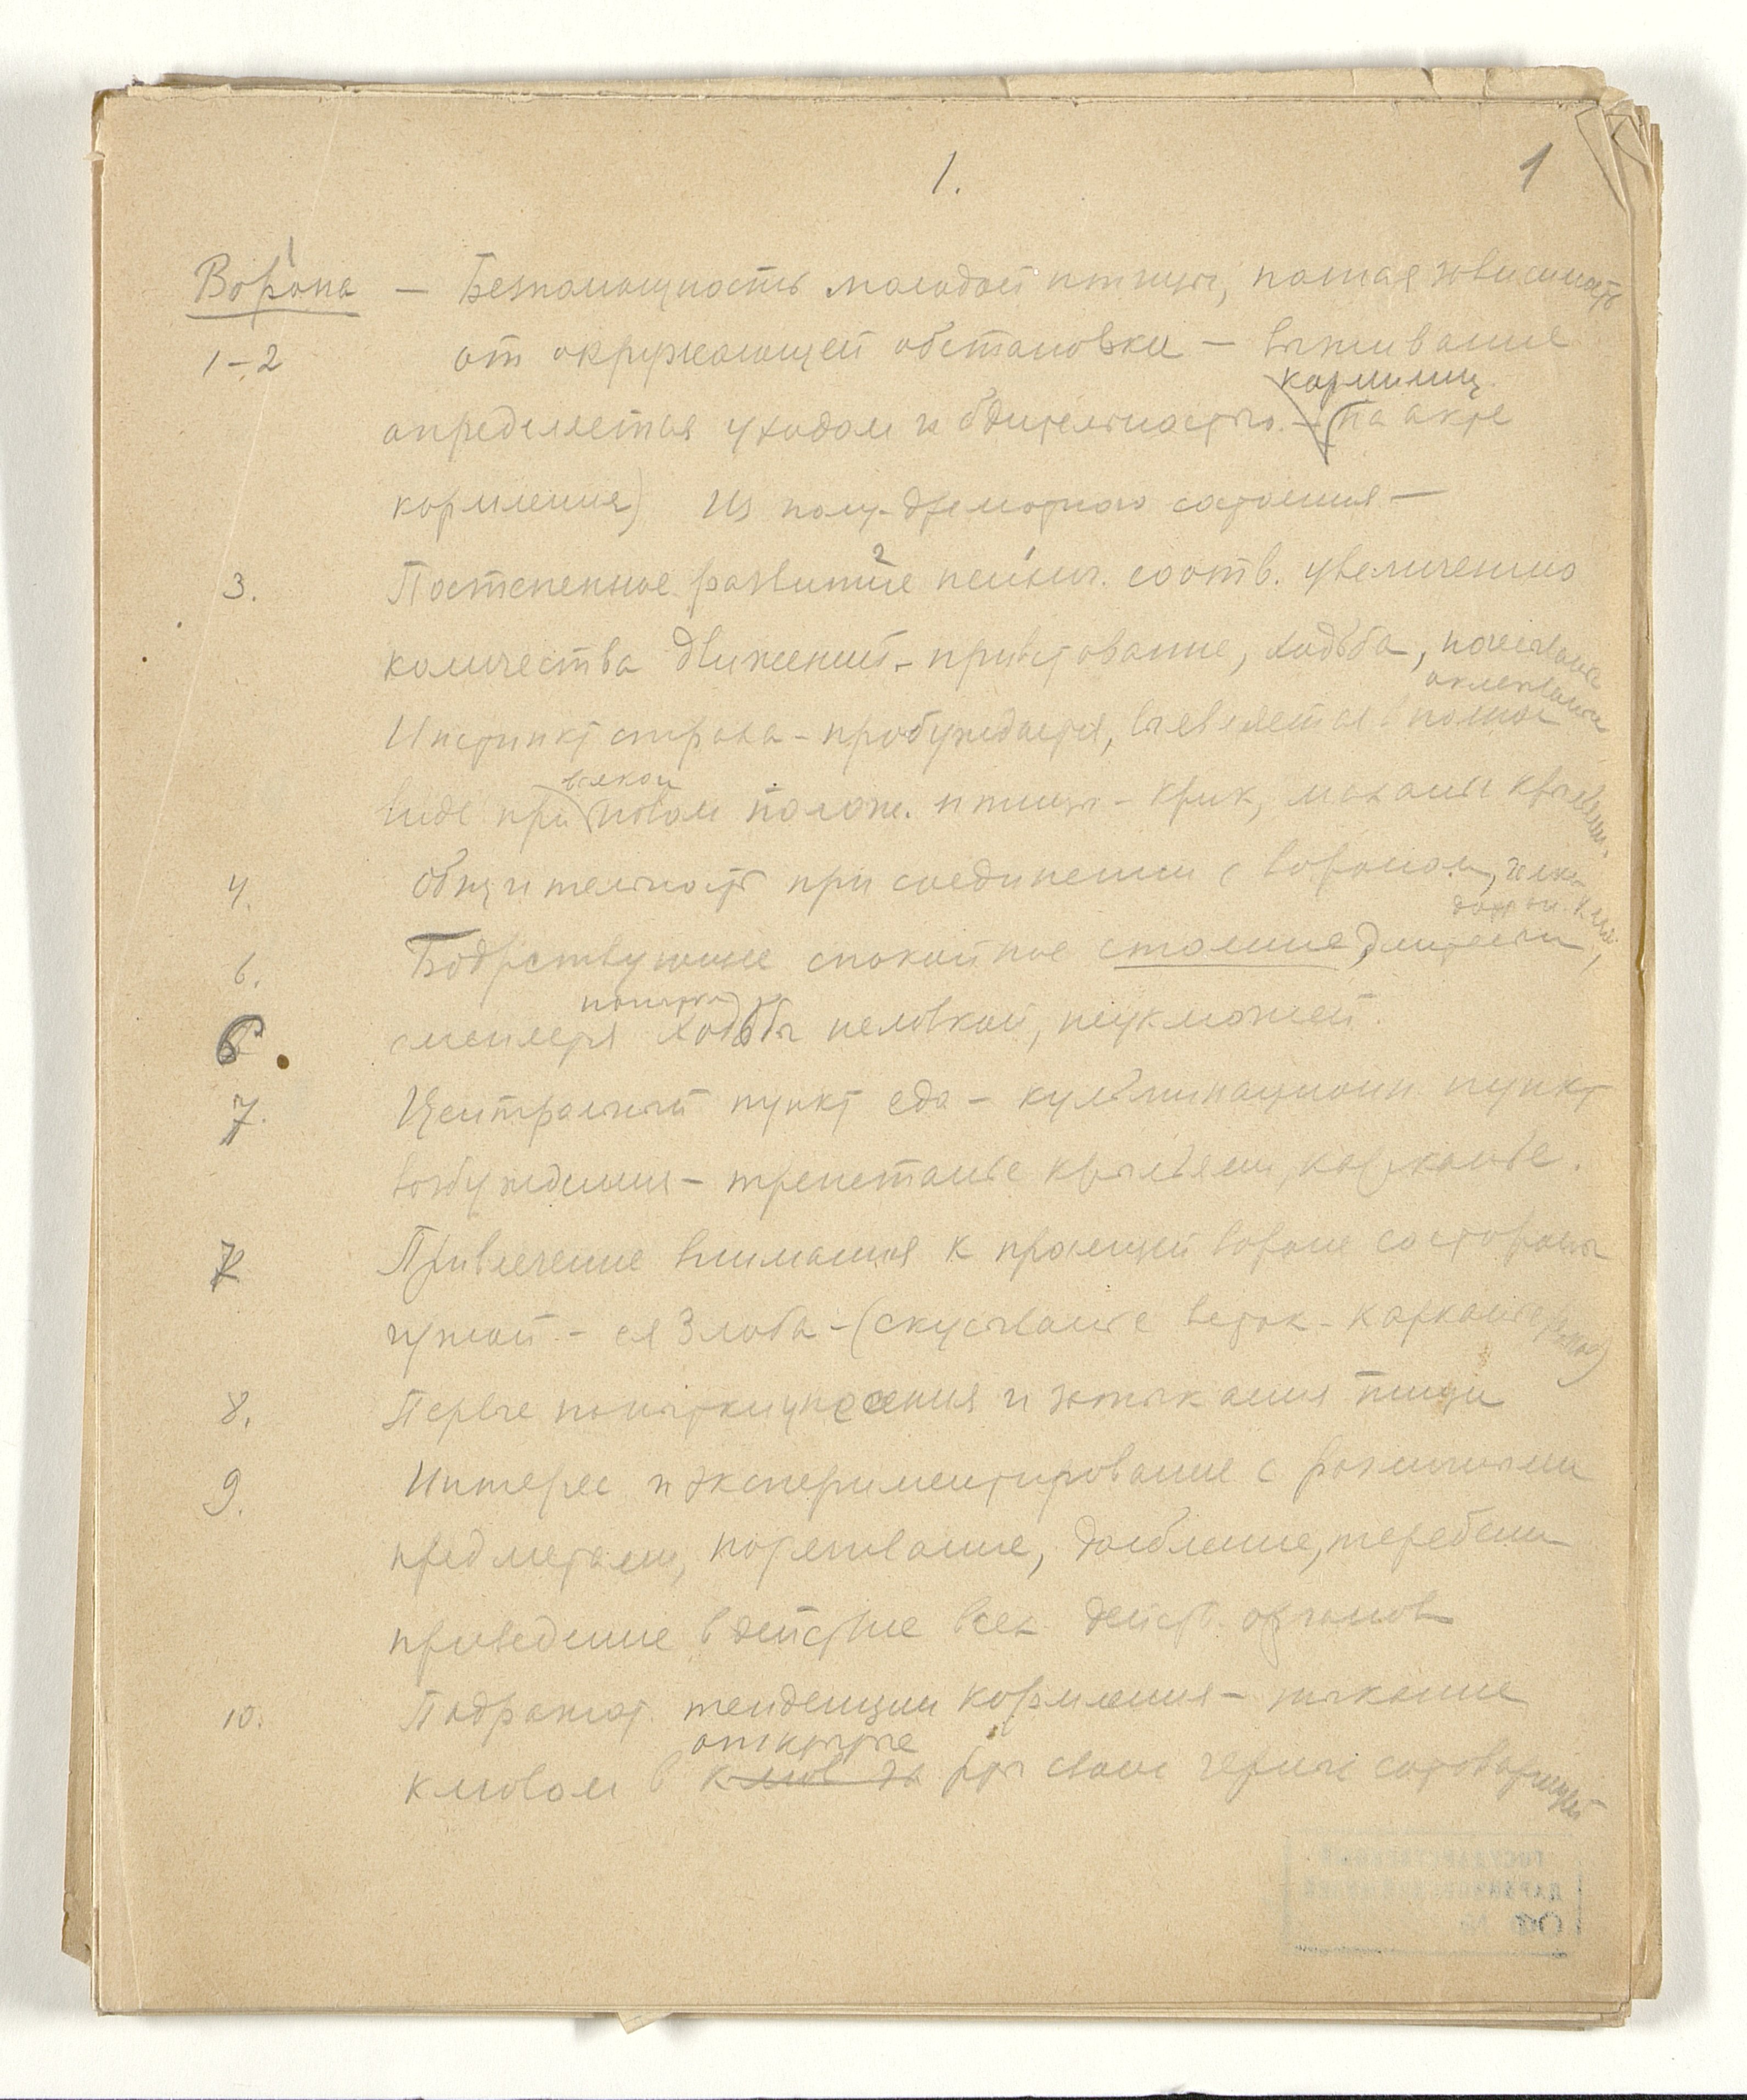 1. 1
Ворона — Безпомощность молодой птицы, полная зависимость
1–2 от окружающей обстановки — выживание
кормилиц
определяется уходом и бдительностью. — (на акте
кормления) Из полу-дремотного состояния —
3. Постепенное развитие психич. соотв. увеличению
количества движений – привставание, ходьба, почесывание
оклевывание
Инстинкт страха – пробуждается, выявляется в полном
всяком
виде при новом полож. птицы – крик, маханье крыльями.
4. Общительность при соединении с вороном,
6. Бодрствующее спокойное стояние,
попытки
6. сменяется ходьбы неловкой, неуклюжей.
7. Центральный пункт еда – кульминационн пункт
возбуждения – трепетанье крыльями, карканье.
7 Привлечение внимания к молодой вороне со стороны
чужой – ея Злоба – (скусыванье веток – карканье
8. Первые попытки унесения и затыкания пищи
9. Интерес и экспериментирование с различными
предметами, долбление, теребени
приведение в действие всех действ. органов
10. Подражат. тенденции кормления – тыкание
открытые
клювом в клюв др рты своих сотоварищей